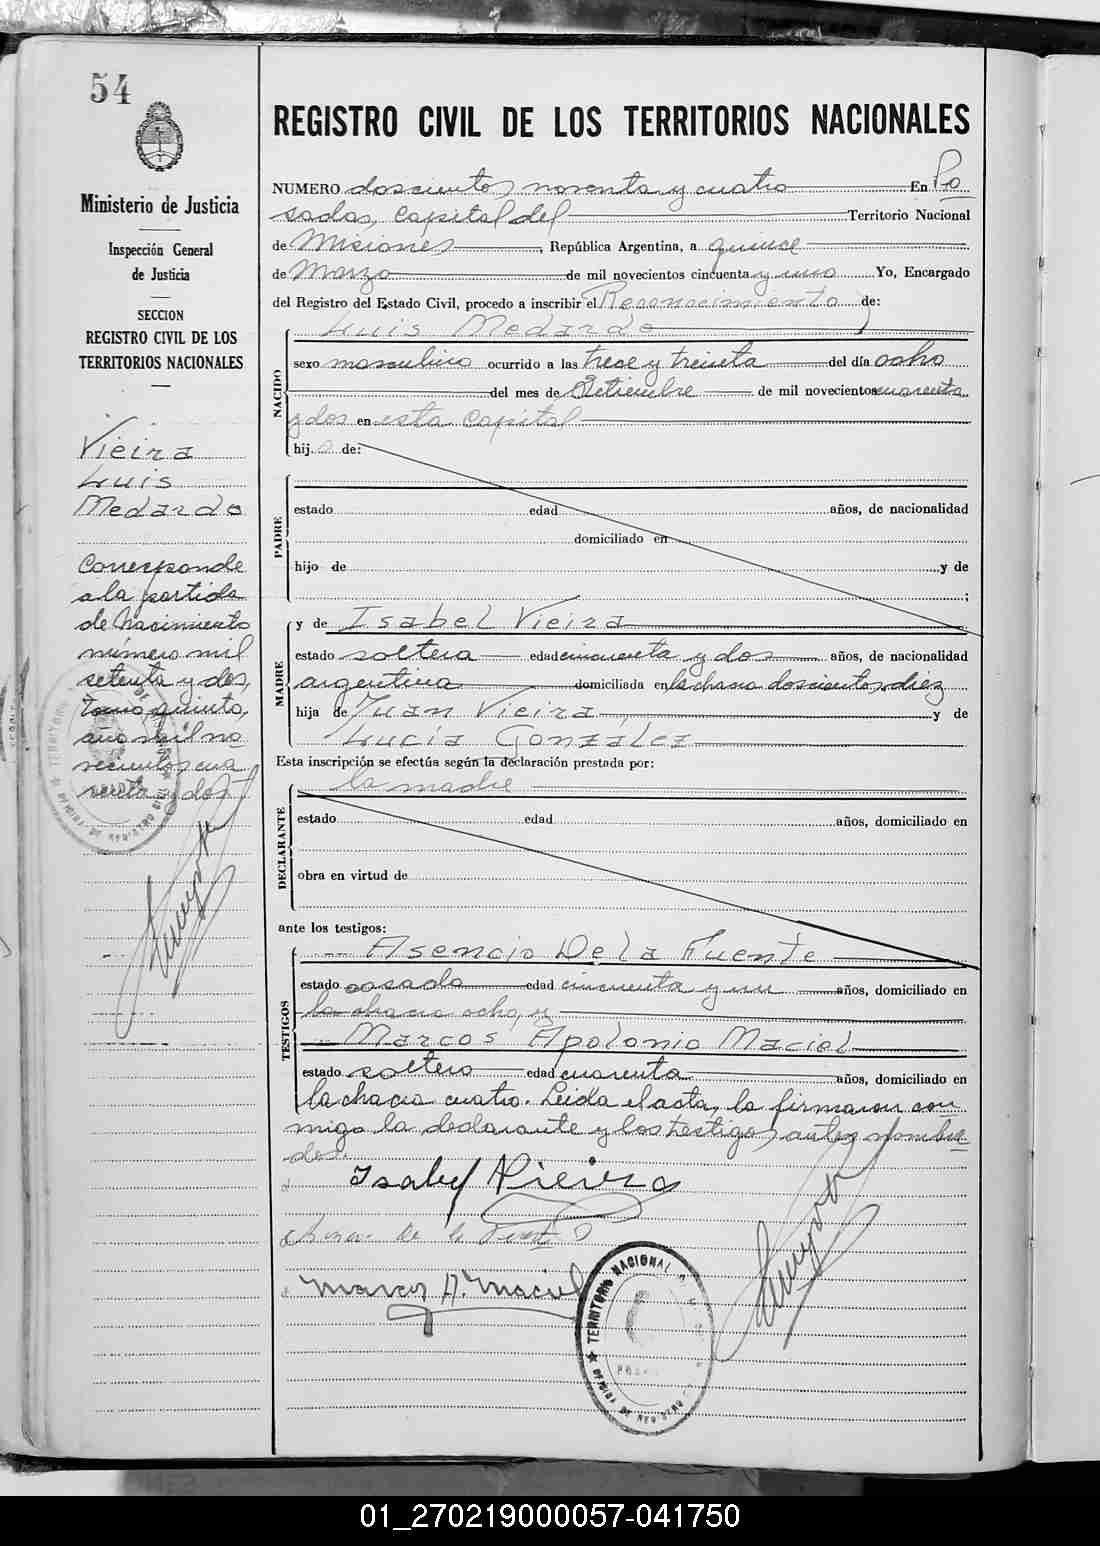 54
Ministerio de Justicia
Inspección General
de Justicia
SECCION
REGISTRO CIVIL DE LOS
TERRITORIOS NACIONALES
Vieira
Luis
Medardo
Corresponde
a la partida
de Nacimiento
número mil
setenta y dos,
tomo quinto,
año mil no
vecientos cua
renta y dos
REGISTRO CIVIL DE LOS TERRITORIOS NACIONALES
NUMERO doscientos noventa y cuatro En Po
sadas, Capital del Territorio Nacional
de Misiones, República Argentina, a quince
de Marzo de mil novecientos cincuenta y uno Yo, Encargado
del Registro del Estado Civil, procedo a inscribir el Reconocimiento de:
NACIDO
Luis Medardo
sexo masculino ocurrido a las trece y treinta del día ocho
del mes de Setiembre de mil novecientos cuarenta
y dos en esta Capital
hijo de:
PADRE
estado edad años, de nacionalidad
domiciliado en
hijo de y de
;
MADRE
y de Isabel Vieira
estado soltera edad cincuenta y dos años, de nacionalidad
argentina domiciliada en la chacra doscientos diez
hija de Juan Vieira y de
Lucía González
Esta inscripción se efectúa según la declaración prestada por:
DECLARANTE
la madre
estado edad años, domiciliado en
obra en virtud de
ante los testigos:
TESTIGOS
Asencio De la Fuente
estado casado edad cincuenta y un años, domiciliado en
la chacra ocho, y
Marcos Apolonio Maciel
estado soltero edad cuarenta años, domiciliado en
la chacra cuatro. Leída el acta, la firmaron con
migo la declarante y los testigos antes nombra
dos.
Isabel Vieira
De la Fuente
Marcos A. Maciel
TERRITORIO NACIONAL
OFICINA DE REGISTRO
01_270219000057-041750